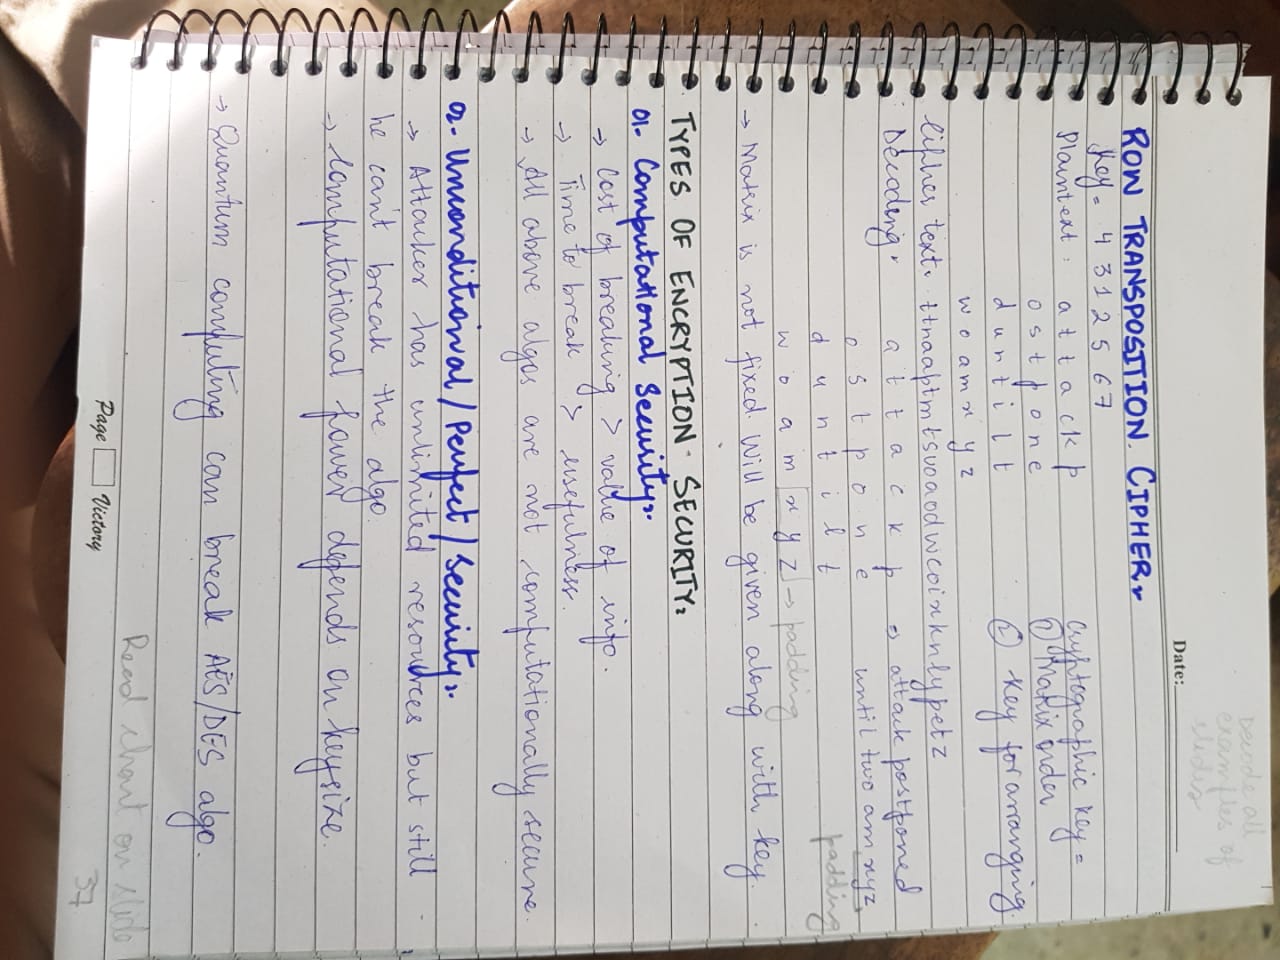 Decode all
examples of
slides
Date:
ROW TRANSPOSITION CIPHER:
Key = 4 3 1 2 5 6 7
Cryptographic key =
Plaintext: a t t a c k p
① Matrix order
o s t p o n e
② Key for arranging.
d u n t i l t
w o a m x y z
Cipher text: ttnaaptmtsuoaodwcoixknlypetz
Decoding: a t t a c k p ⇒ attack postponed
o s t p o n e until two am xyz
d u n t i l t padding
w o a m x y z → padding
→ Matrix is not fixed. Will be given along with key.
TYPES OF ENCRYPTION SECURITY:
01. Computational Security:
→ Cost of breaking > value of info.
→ Time to break > usefulness.
→ All above algos are not computationally secure.
02. Unconditional / Perfect / Security:
→ Attacker has unlimited resources but still
he can't break the algo.
→ Computational power depends on keysize.
→ Quantum computing can break AES/DES algo.
Read chart on slide
37
Page Victory